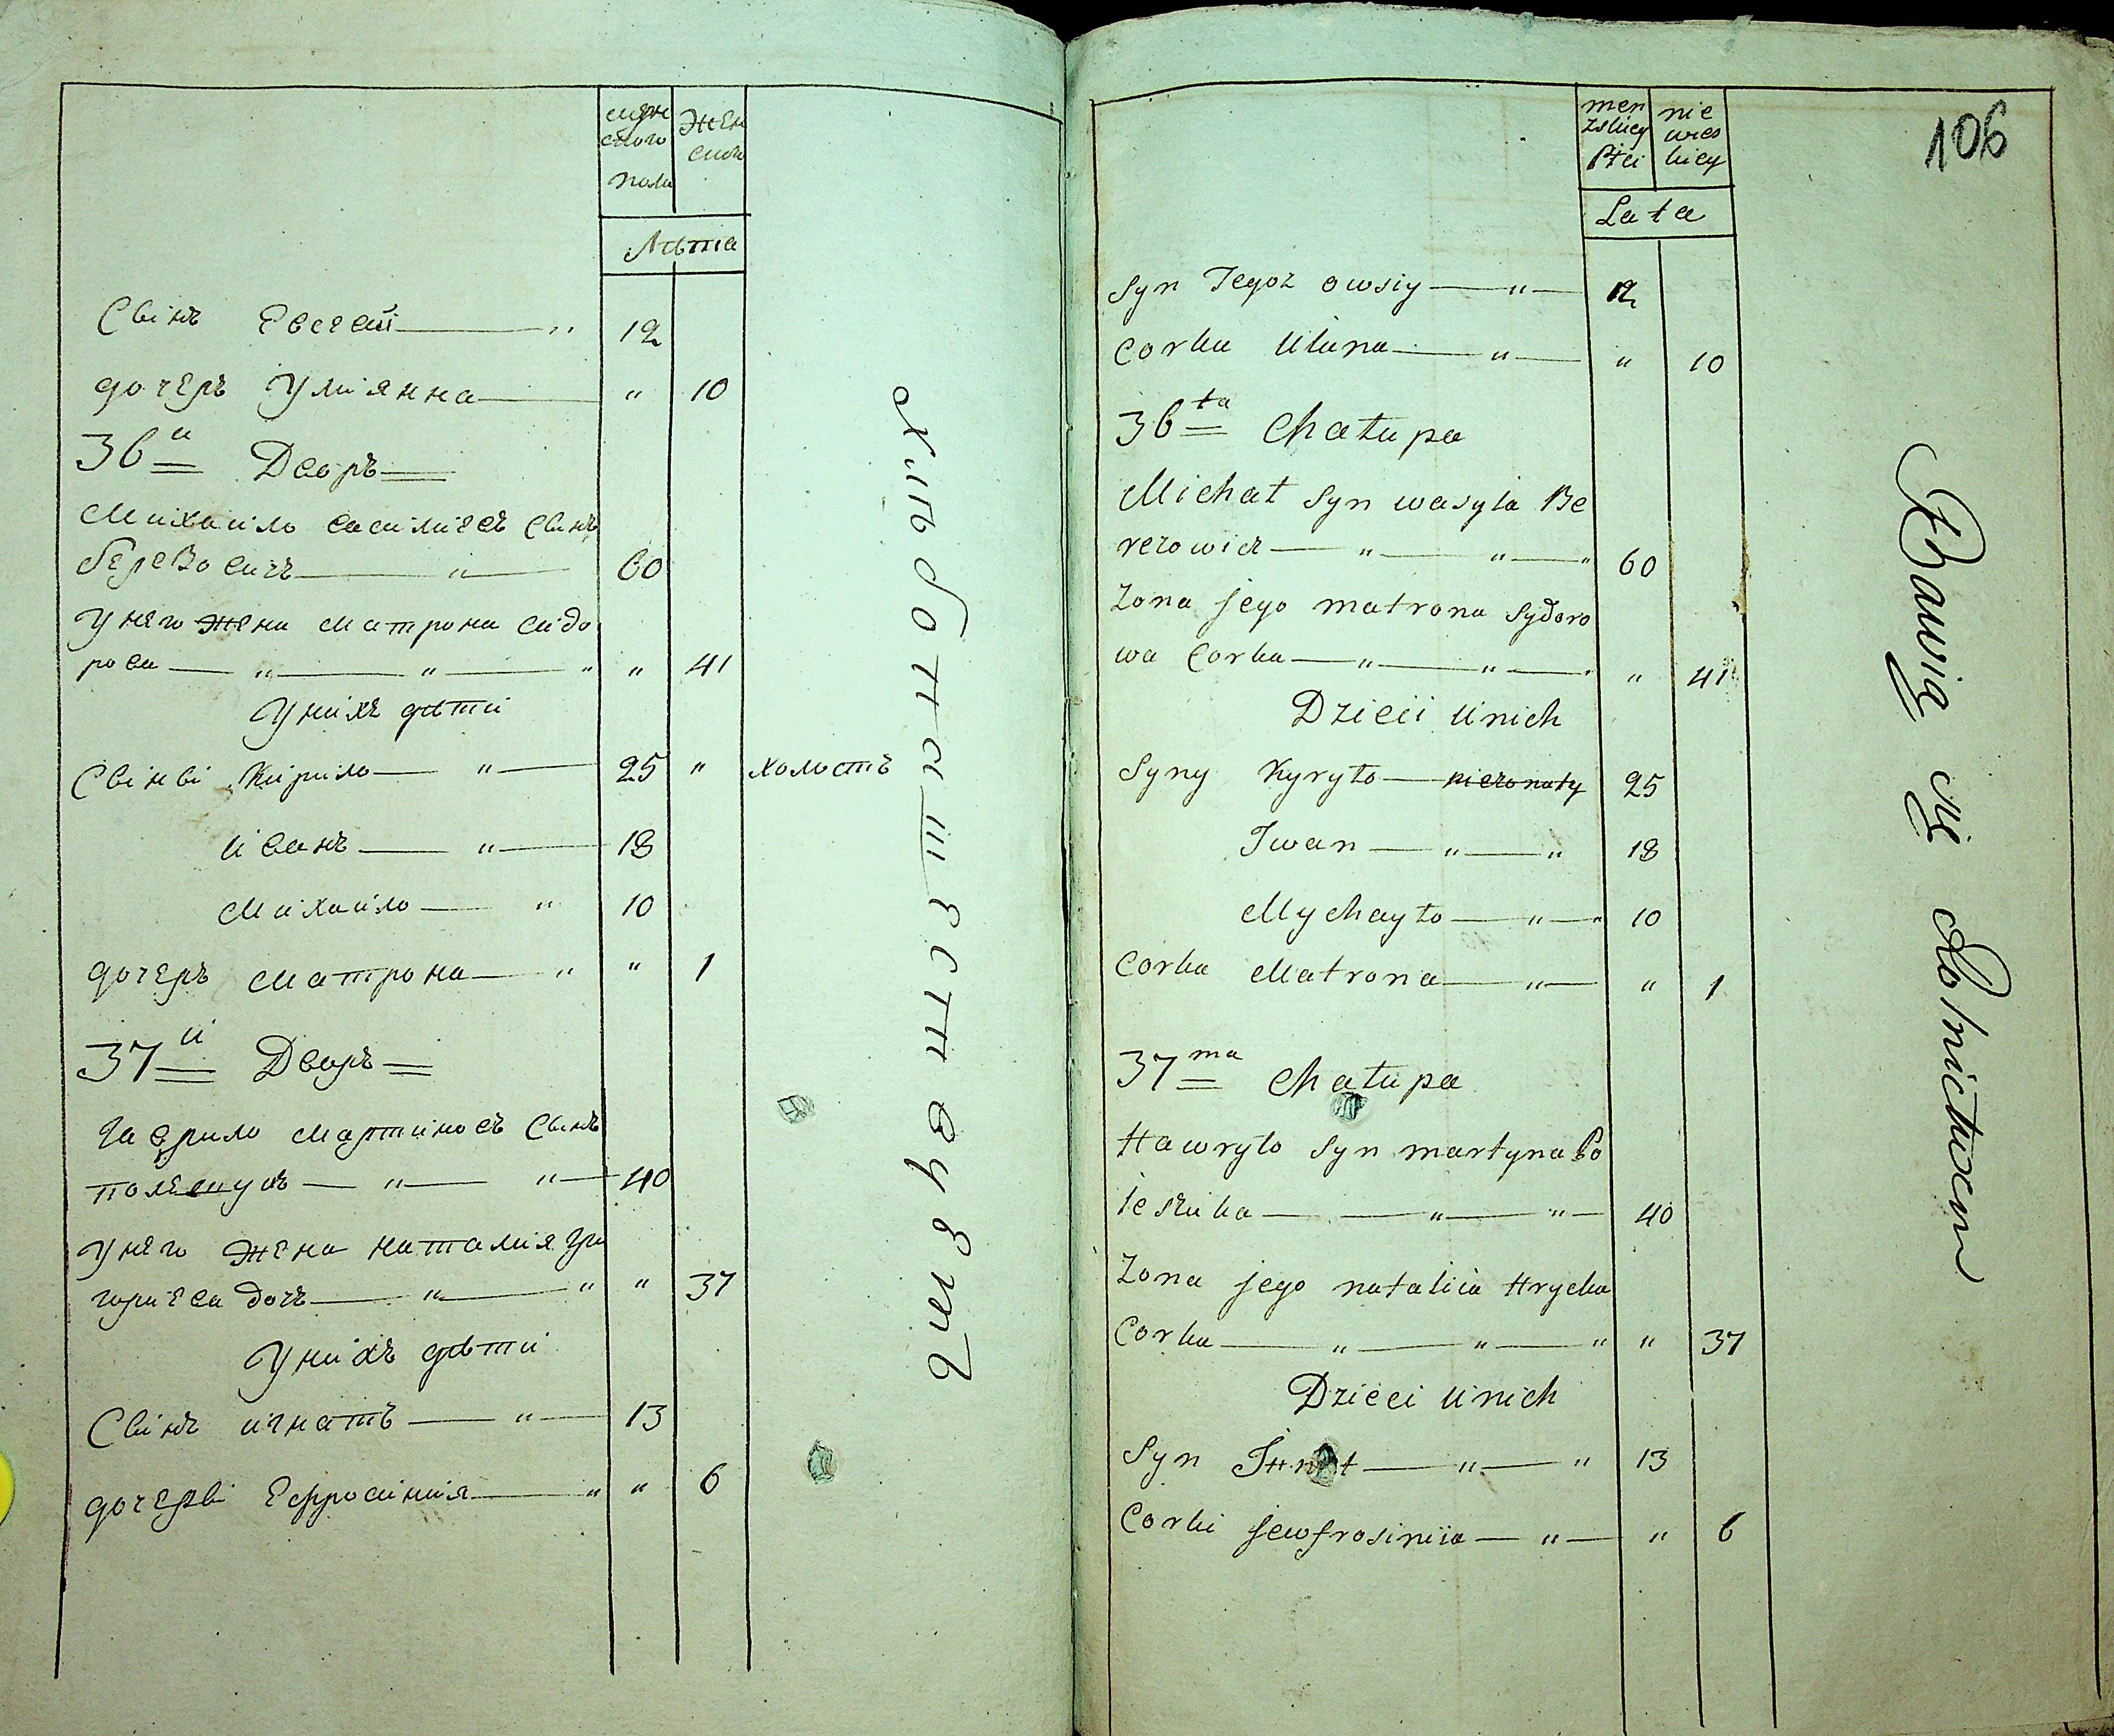 мужеского пола
женского
Лѣта
Свінъ Евсей — " 12
дочерь Улиянна — " 10
36й Дворъ
Михайло василиевъ Свінъ
березовичъ — " — 60
У него жена матрона сидо
рова — " — " — " " 41
У нихъ дѣти
Свінві Кирило — " — 25 " холостъ
иванъ — " — 18
Михайло — " 10
дочерь матрона — " " 1
37й Дворъ
гаврило мартиновъ Свінъ
полешукъ — " — " — 40
У него жена наталия гри
гориева дочъ — " — " " 37
У нихъ дѣти
Свінъ игнатъ — " — 13
дочерві Ефросиния — " " 6
хлѣбопашествуетъ
106
menzskiey Płci
niewieskiey
Lata
Syn Tegoz owsiy — " — 12
Corka Ulana — " — " 10
36ta Chałupa
Michał Syn wasyla Be
rezowicz — " — " — " 60
Zona jego matrona Sydoro
wa Corka — " — " — " 41
Dzieci U nich
Syny Kyryło — niezonaty 25
Iwan — " — " 18
Mychayło — " — " 10
Corka Matrona — " — " 1
37ma Chałupa
Hawryło Syn martyna Po
leszuka — " — " — 40
Zona jego nataliia Hrycka
Corka — " — " — " " 37
Dzieci U nich
Syn Ihnat — " — " 13
Corki jewfrosiniia — " — " 6
Bawią się Rolnictwem